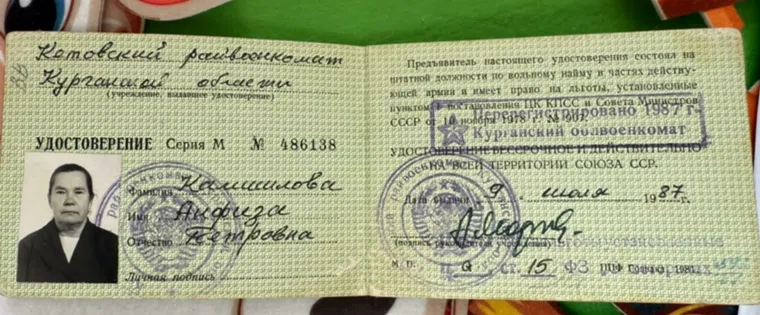 Кетовский райвоенкомат
Курганской области
(учреждение, выдавшее удостоверение)
УДОСТОВЕРЕНИЕ Серия М № 486138
Фамилия Камшилова
Имя Анфиза
Отчество Петровна
Личная подпись
Предъявитель настоящего удостоверения состоял на
штатной должности по вольному найму в частях действу-
ющей армии и имеет право на льготы, установленные
пунктом постановления ЦК КПСС и Совета Министров
СССР от 10 ноября № 907.
Перерегистрировано 1987 г.
Курганский облвоенкомат
УДОСТОВЕРЕНИЕ БЕССРОЧНОЕ И ДЕЙСТВИТЕЛЬНО
НА ВСЕЙ ТЕРРИТОРИИ СОЮЗА ССР.
Дата выдачи 9 июля 1987 г.
(подпись руководителя учреждения)
М. П.
ст. 15 ФЗ